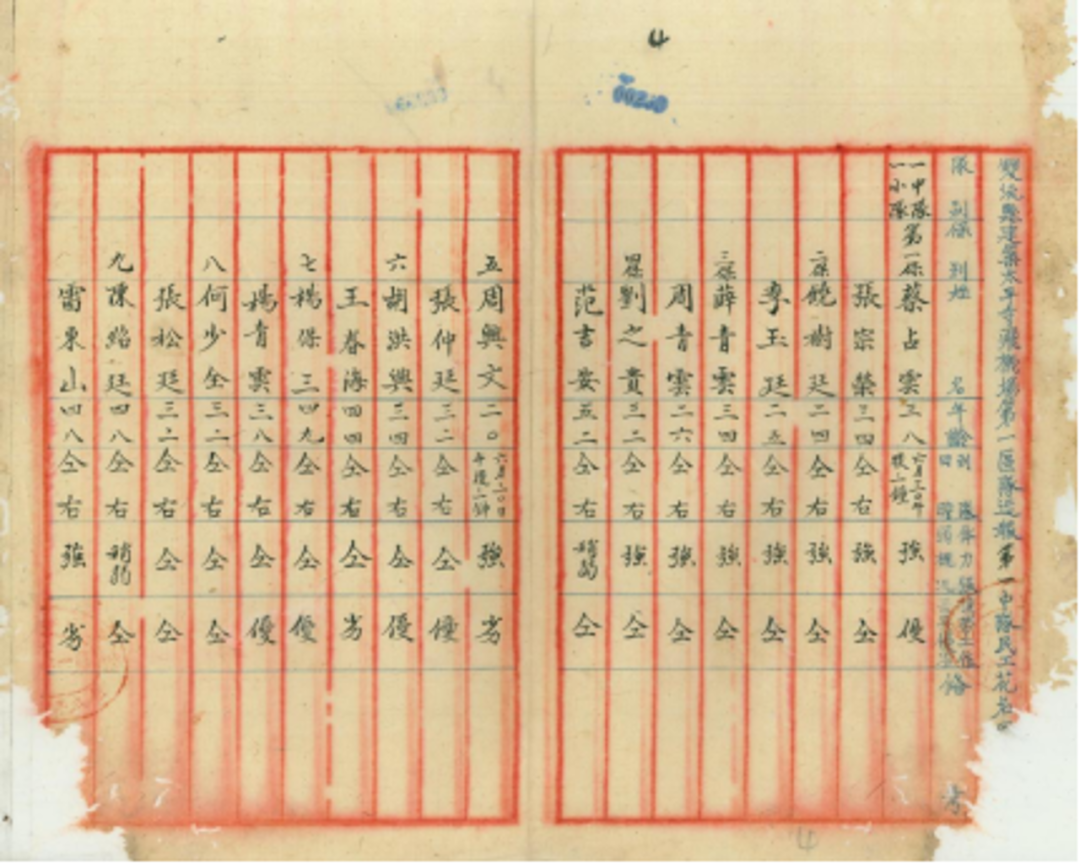 4
00240
雙流縣建築太平寺飛機場第一區隊造報第一中隊民工花名
隊別 保別 姓名 年齡 到
一中隊一小隊 第一保 蔡占雲 三八 六月三日午後二鐘 強 優
張宗榮 三四 仝右 強 仝
二保 饒樹廷 二四 仝右 強 仝
李玉廷 二五 仝右 強 仝
三保 薛青雲 三四 仝右 強 仝
周青雲 二六 仝右 強 仝
四保 劉之貴 三二 仝右 強 仝
范吉安 五二 仝右 稍弱 仝
五 周興文 二〇 六月三〇日午後二鐘 強 劣
張仲廷 三二 仝右 仝 優
六 胡洪興 三四 仝右 仝 優
王春海 四四 仝右 仝 劣
七 楊保三 四九 仝右 仝 優
楊青雲 三八 仝右 仝 優
八 何少全 三二 仝右 仝 仝
張松廷 三二 仝右 仝 仝
九 陳紹廷 四八 仝右 稍弱 仝
雷東山 四八 仝右 強 劣